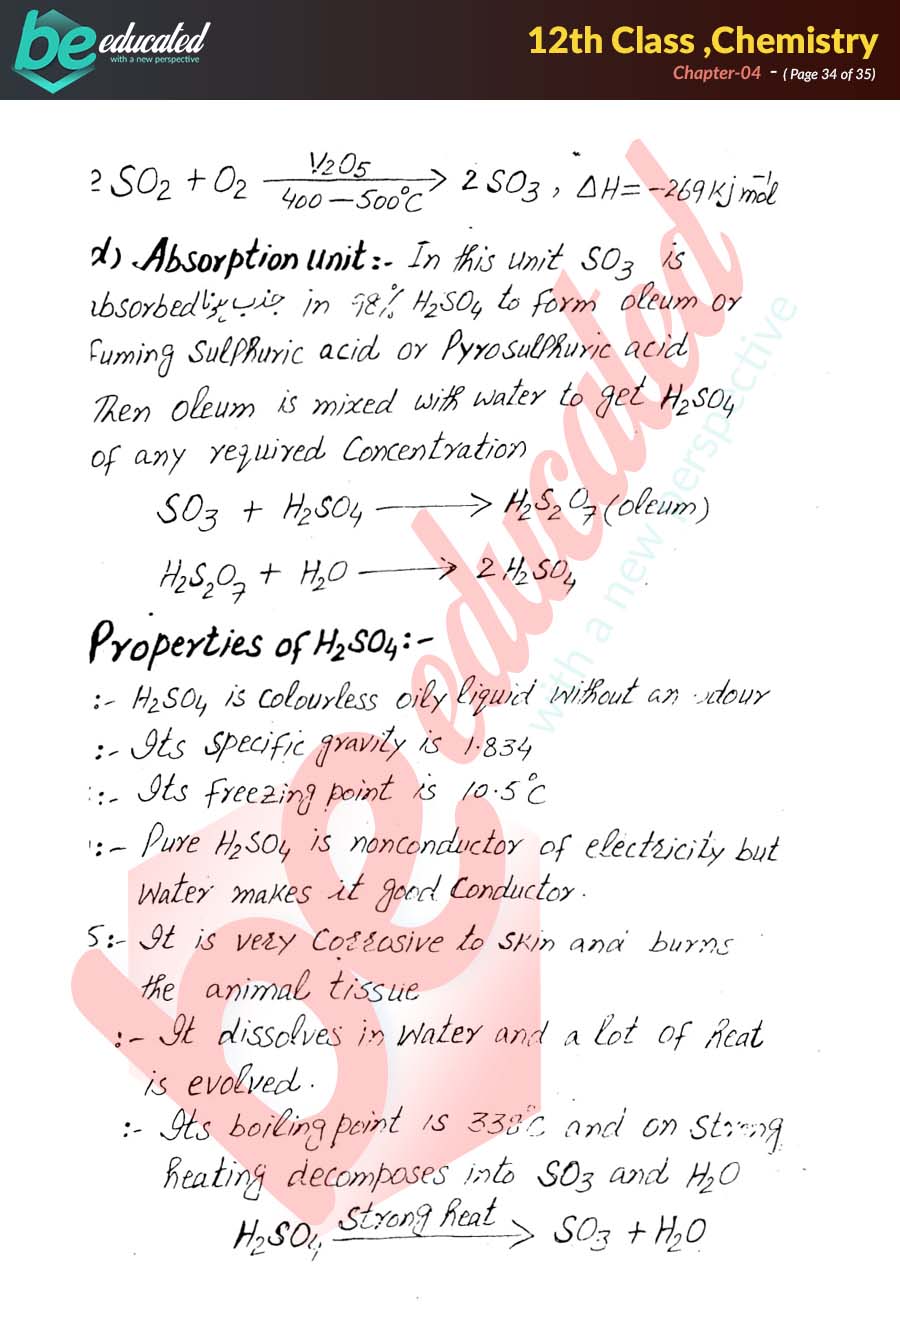 be educated
with a new perspective
12th Class ,Chemistry
Chapter-04 - ( Page 34 of 35)
2SO2 + O2 V2O5 400–500°C → 2SO3, ΔH=-269Kj mol⁻¹
d) Absorption unit:- In this unit SO3 is
absorbed in 98% H2SO4 to form oleum or
fuming Sulphuric acid or Pyrosulphuric acid
Then oleum is mixed with water to get H2SO4
of any required Concentration
SO3 + H2SO4 → H2S2O7 (oleum)
H2S2O7 + H2O → 2H2SO4
Properties of H2SO4:-
:- H2SO4 is colourless oily liquid without an odour
:- Its specific gravity is 1.834
:- Its freezing point is 10.5°C
:- Pure H2SO4 is nonconductor of electricity but
water makes it good conductor.
5:- It is very corrosive to skin and burns
the animal tissue
:- It dissolves in water and a lot of heat
is evolved.
:- Its boiling point is 338°C and on strong
heating decomposes into SO3 and H2O
H2SO4 Strong heat → SO3 + H2O
be educated
with a new perspective